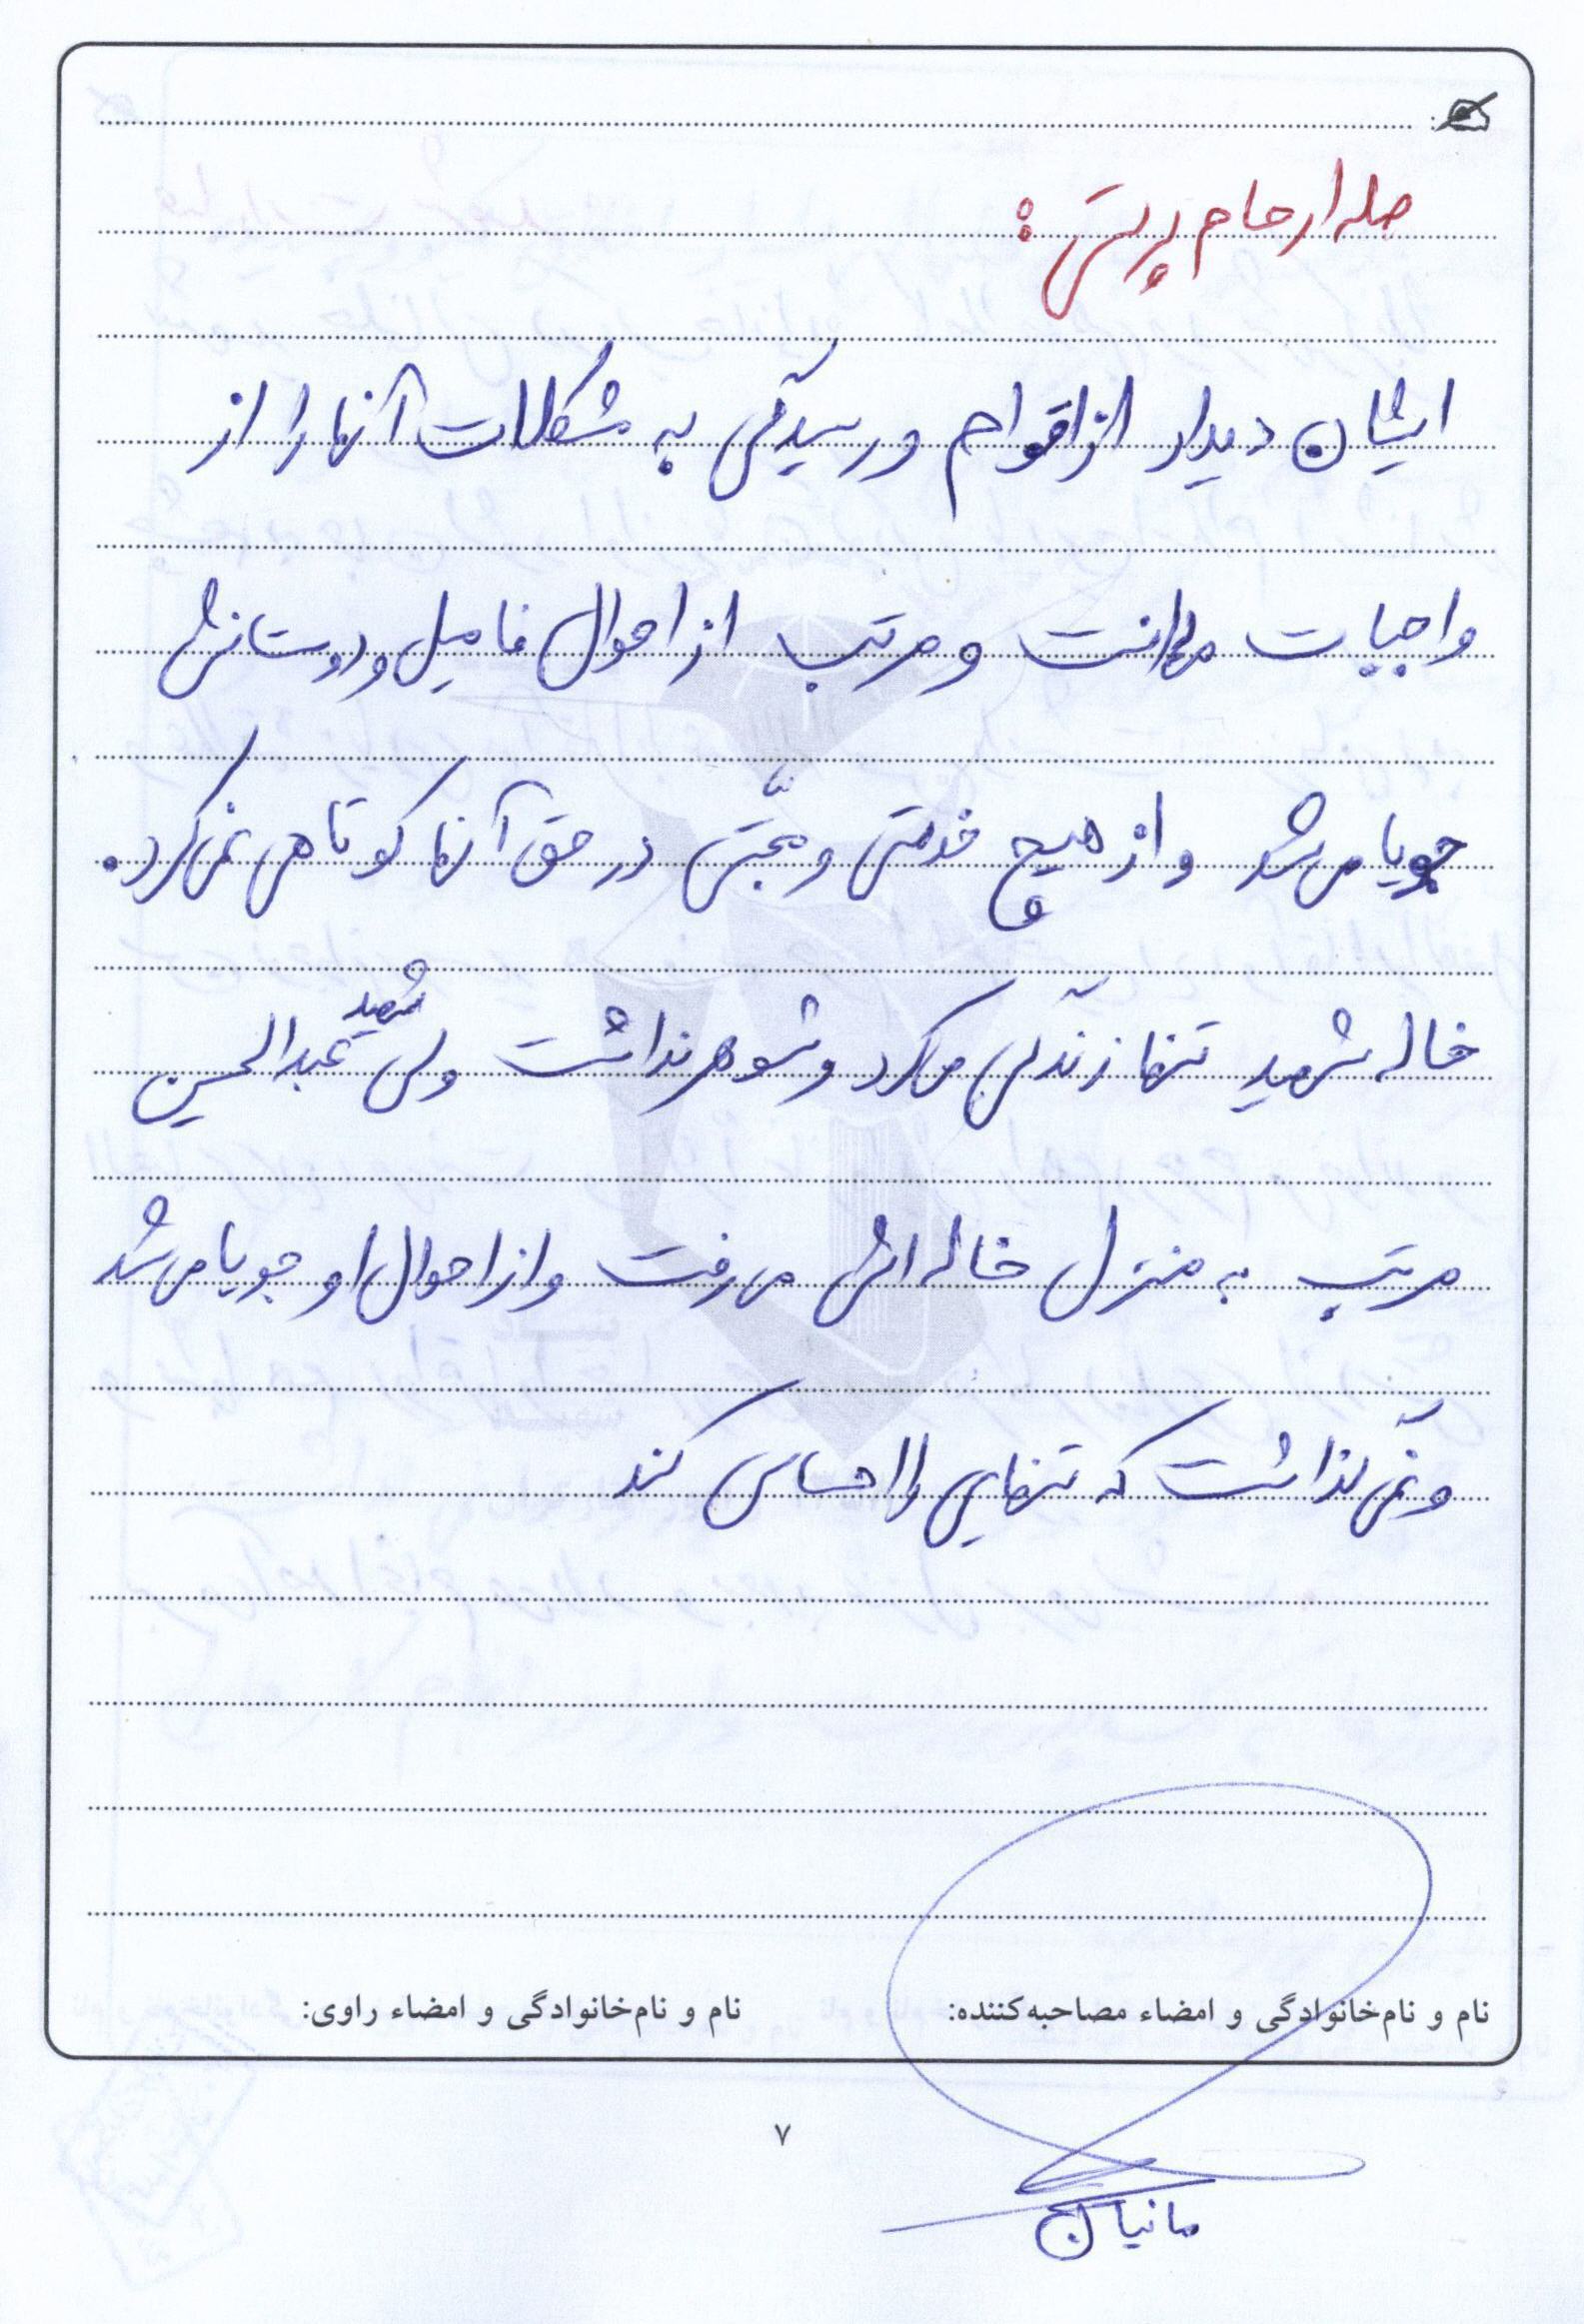 صله ارحام پرستی :
ایشان دیدار از اقوام و رسیدگی به مشکلات آنها را از
واجبات می‌دانست و مرتب از احوال فامیل و دوستانش
جویا می‌شد و از هیچ خدمتی و محبّتی در حق آنها کوتاهی نمی‌کرد.
خاله شهید تنها زندگی می‌کرد و شوهر نداشت ولی شهید عبدالحسین
مرتب به منزل خاله اش می‌رفت و از احوال او جویا می‌شد
و نمی‌گذاشت که تنهایی را احساس کند
نام و نام‌خانوادگی و امضاء مصاحبه‌کننده: نام و نام‌خانوادگی و امضاء راوی:
۷